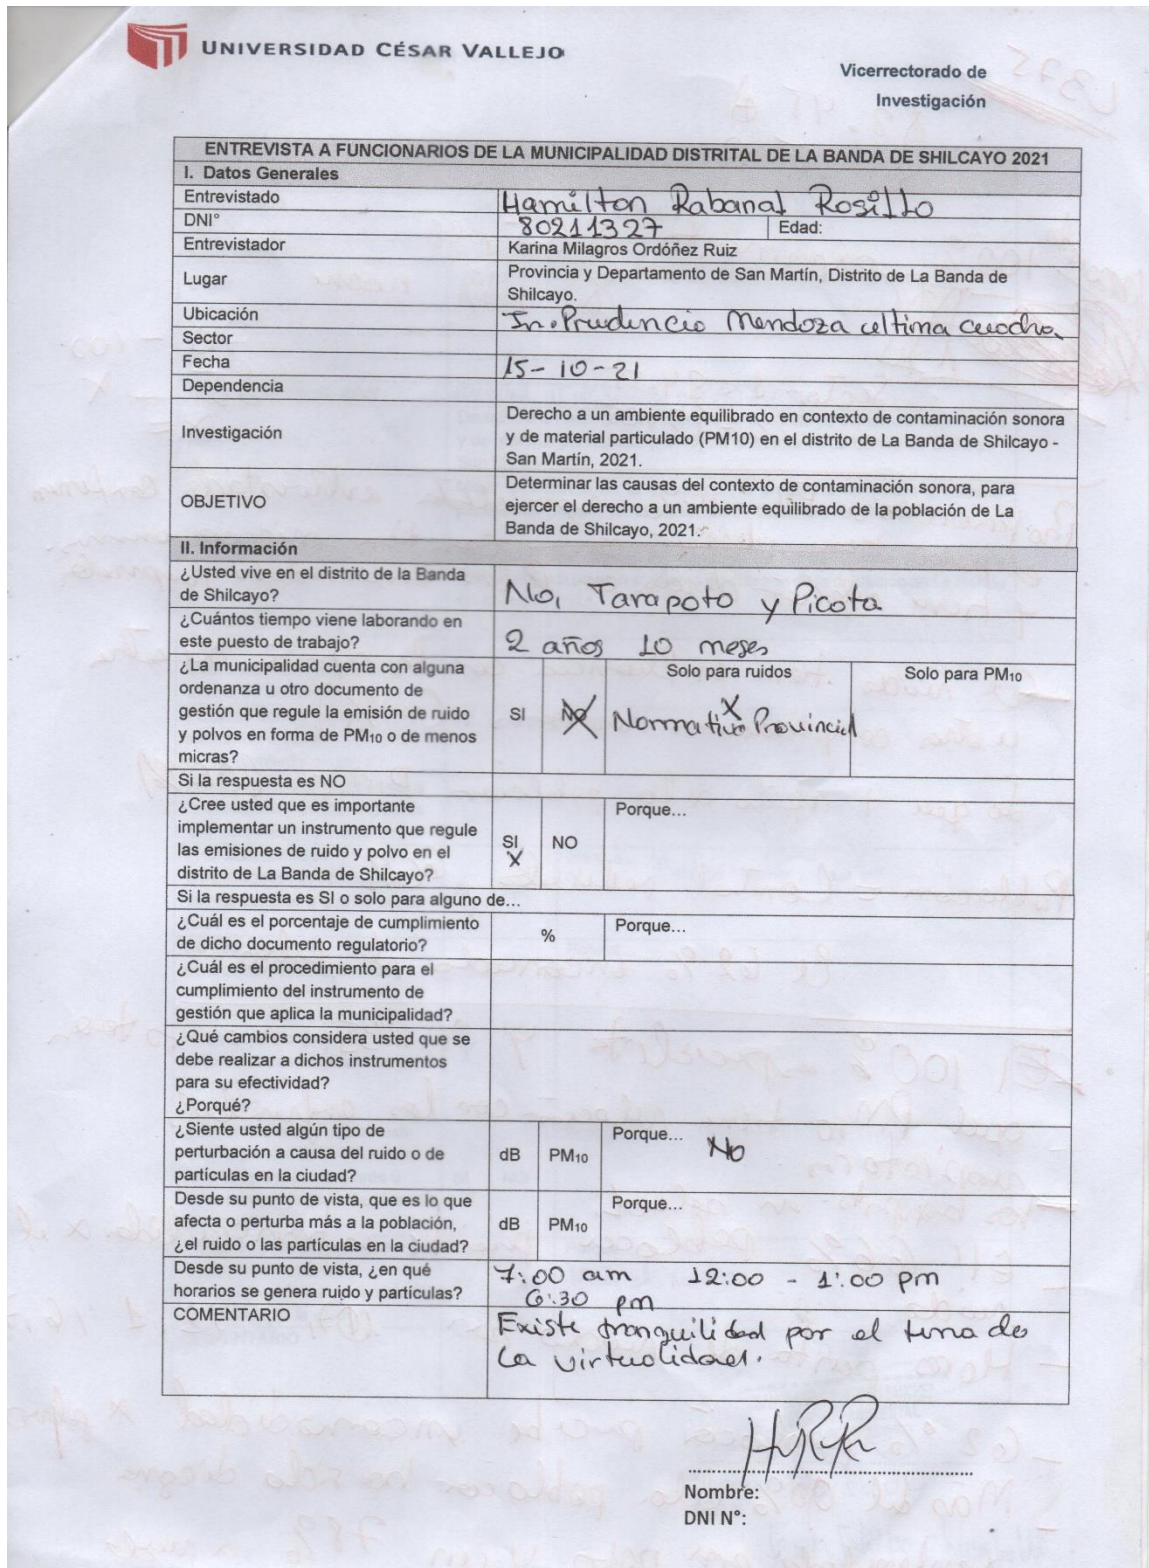 UNIVERSIDAD CÉSAR VALLEJO
Vicerrectorado de
Investigación
ENTREVISTA A FUNCIONARIOS DE LA MUNICIPALIDAD DISTRITAL DE LA BANDA DE SHILCAYO 2021
I. Datos Generales
Entrevistado Hamilton Rabanal Rosillo
DNI° 80211327 Edad:
Entrevistador Karina Milagros Ordóñez Ruiz
Lugar Provincia y Departamento de San Martín, Distrito de La Banda de
Shilcayo.
Ubicación Jr. Prudencio Mendoza ultima cuadra
Sector
Fecha 15-10-21
Dependencia
Investigación Derecho a un ambiente equilibrado en contexto de contaminación sonora
y de material particulado (PM10) en el distrito de La Banda de Shilcayo -
San Martín, 2021.
OBJETIVO Determinar las causas del contexto de contaminación sonora, para
ejercer el derecho a un ambiente equilibrado de la población de La
Banda de Shilcayo, 2021.
II. Información
¿Usted vive en el distrito de la Banda
de Shilcayo? No, Tarapoto y Picota
¿Cuántos tiempo viene laborando en
este puesto de trabajo? 2 años 10 meses
¿La municipalidad cuenta con alguna
ordenanza u otro documento de
gestión que regule la emisión de ruido
y polvos en forma de PM10 o de menos
micras?
SI NO Solo para ruidos Solo para PM10
X
Normativa Provincial
Si la respuesta es NO
¿Cree usted que es importante
implementar un instrumento que regule
las emisiones de ruido y polvo en el
distrito de La Banda de Shilcayo?
SI NO Porque...
X
Si la respuesta es SI o solo para alguno de...
¿Cuál es el porcentaje de cumplimiento
de dicho documento regulatorio?
% Porque...
¿Cuál es el procedimiento para el
cumplimiento del instrumento de
gestión que aplica la municipalidad?
¿Qué cambios considera usted que se
debe realizar a dichos instrumentos
para su efectividad?
¿Porqué?
¿Siente usted algún tipo de
perturbación a causa del ruido o de
partículas en la ciudad?
dB PM10 Porque... No
Desde su punto de vista, que es lo que
afecta o perturba más a la población,
¿el ruido o las partículas en la ciudad?
dB PM10 Porque...
Desde su punto de vista, ¿en qué
horarios se genera ruido y partículas?
7:00 am 12:00 - 1:00 pm
6:30 pm
COMENTARIO Existe tranquilidad por el tema de
la virtualidad.
Nombre:
DNI N°: